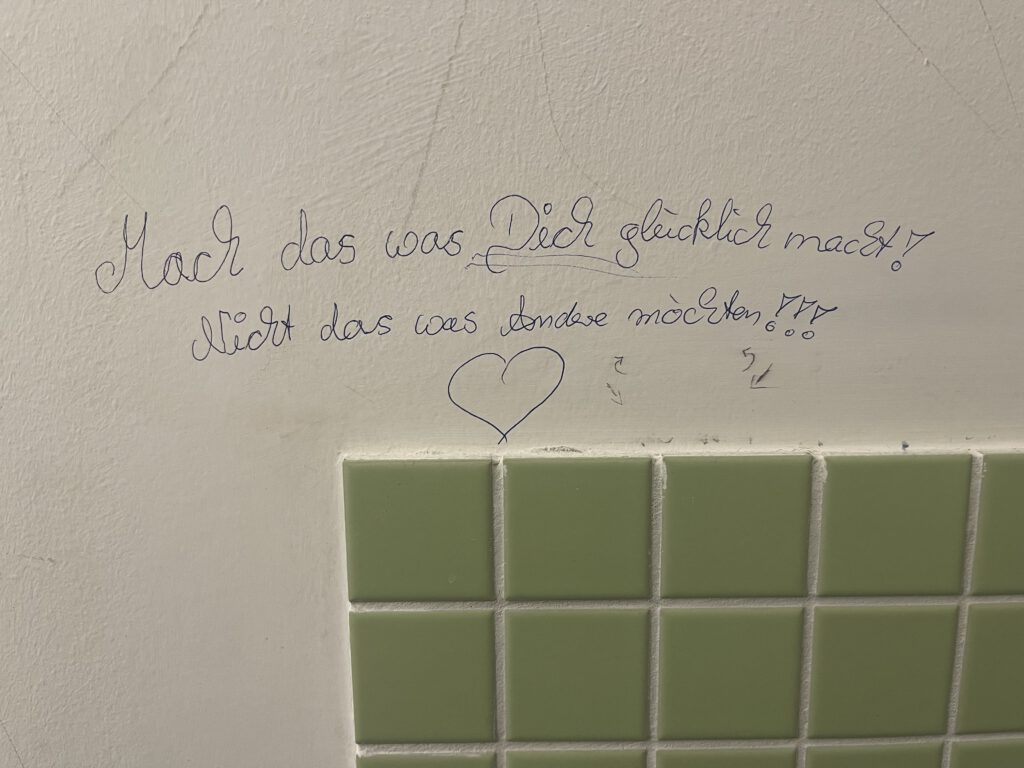 Mach das was Dich glücklich macht!
Nicht das was Andere möchten!!!